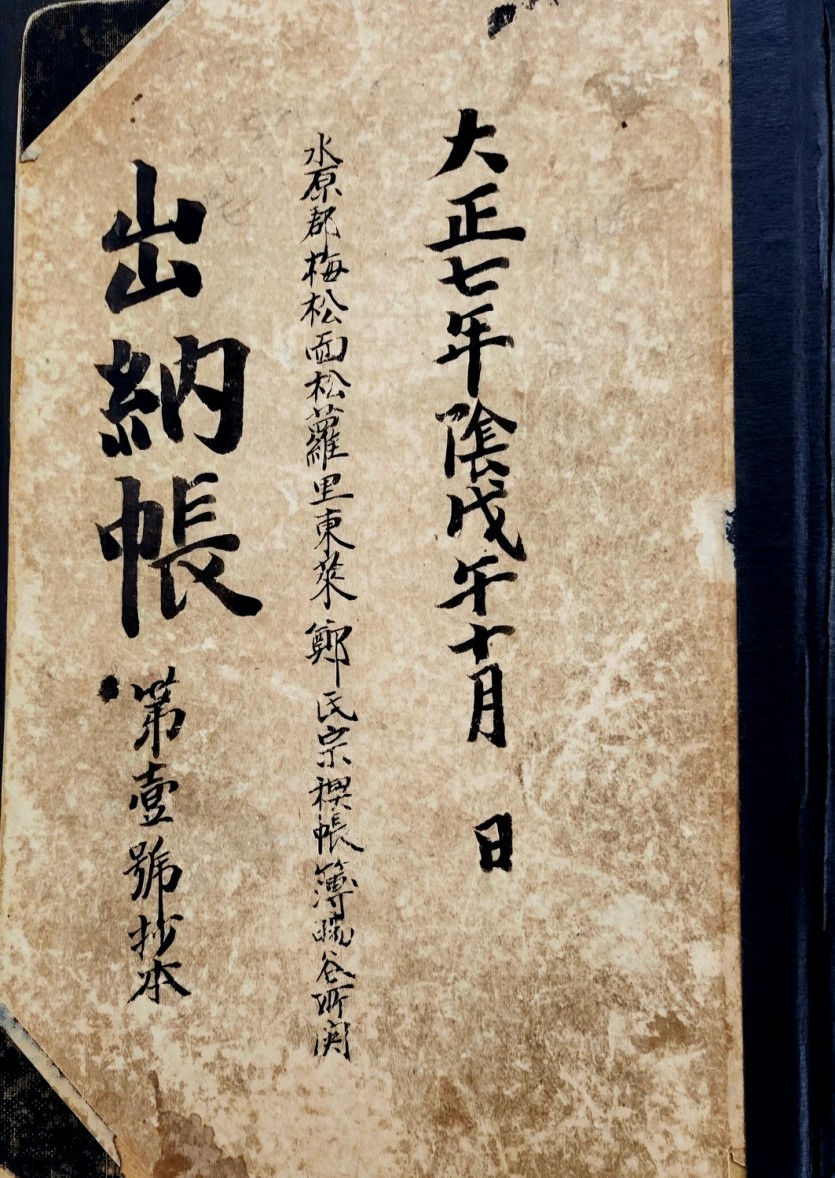 大正七年陰戊午十月 日
水原郡梅松面松蘿里東萊鄭氏宗稧帳簿暘谷所関
出納帳 第壹號抄本